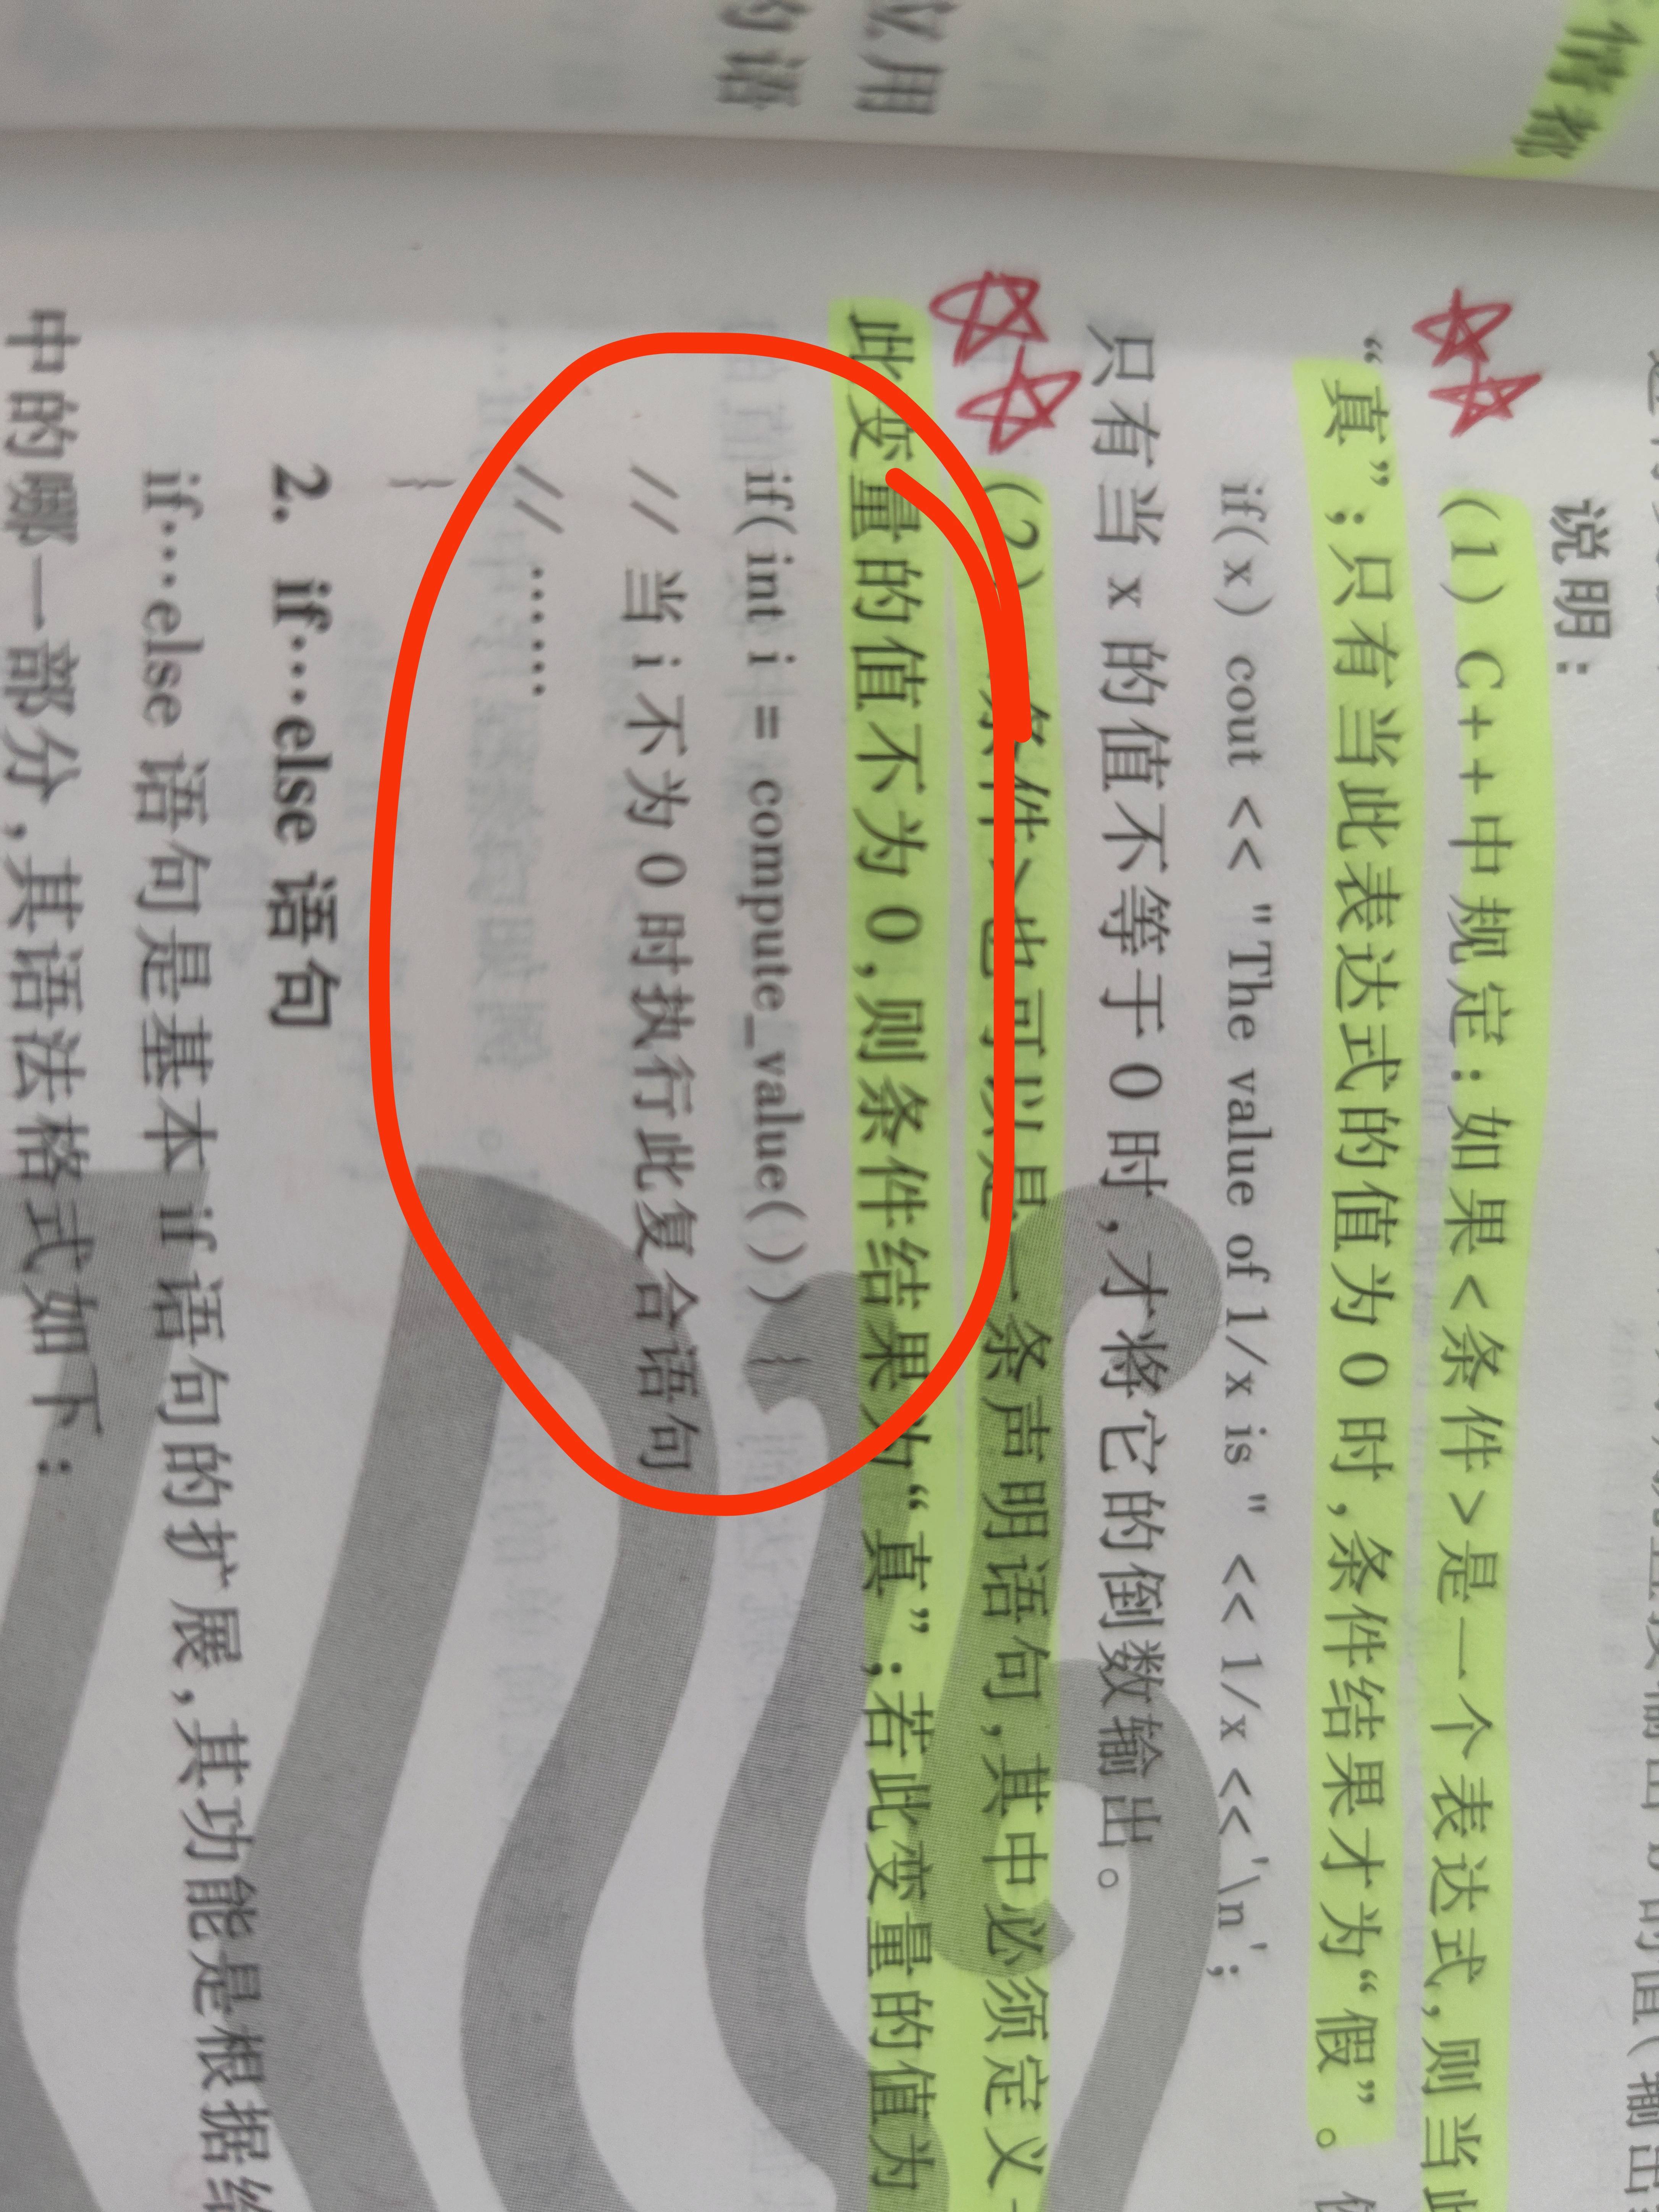 应用
的语
情都
说明：
（1）C++中规定：如果<条件>是一个表达式，则当此
“真”；只有当此表达式的值为0时，条件结果才为“假”。
if(x) cout << "The value of 1/x is " << 1/x << '\n';
只有当 x 的值不等于 0 时，才将它的倒数输出。
（2）条件>也可以是一条声明语句，其中必须定义
此变量的值不为 0，则条件结果为“真”；若此变量的值为
if(int i = compute_value()) {
// 当 i 不为 0 时执行此复合语句
// ……
}
2. if…else 语句
if…else 语句是基本 if 语句的扩展，其功能是根据
中的哪一部分，其语法格式如下：